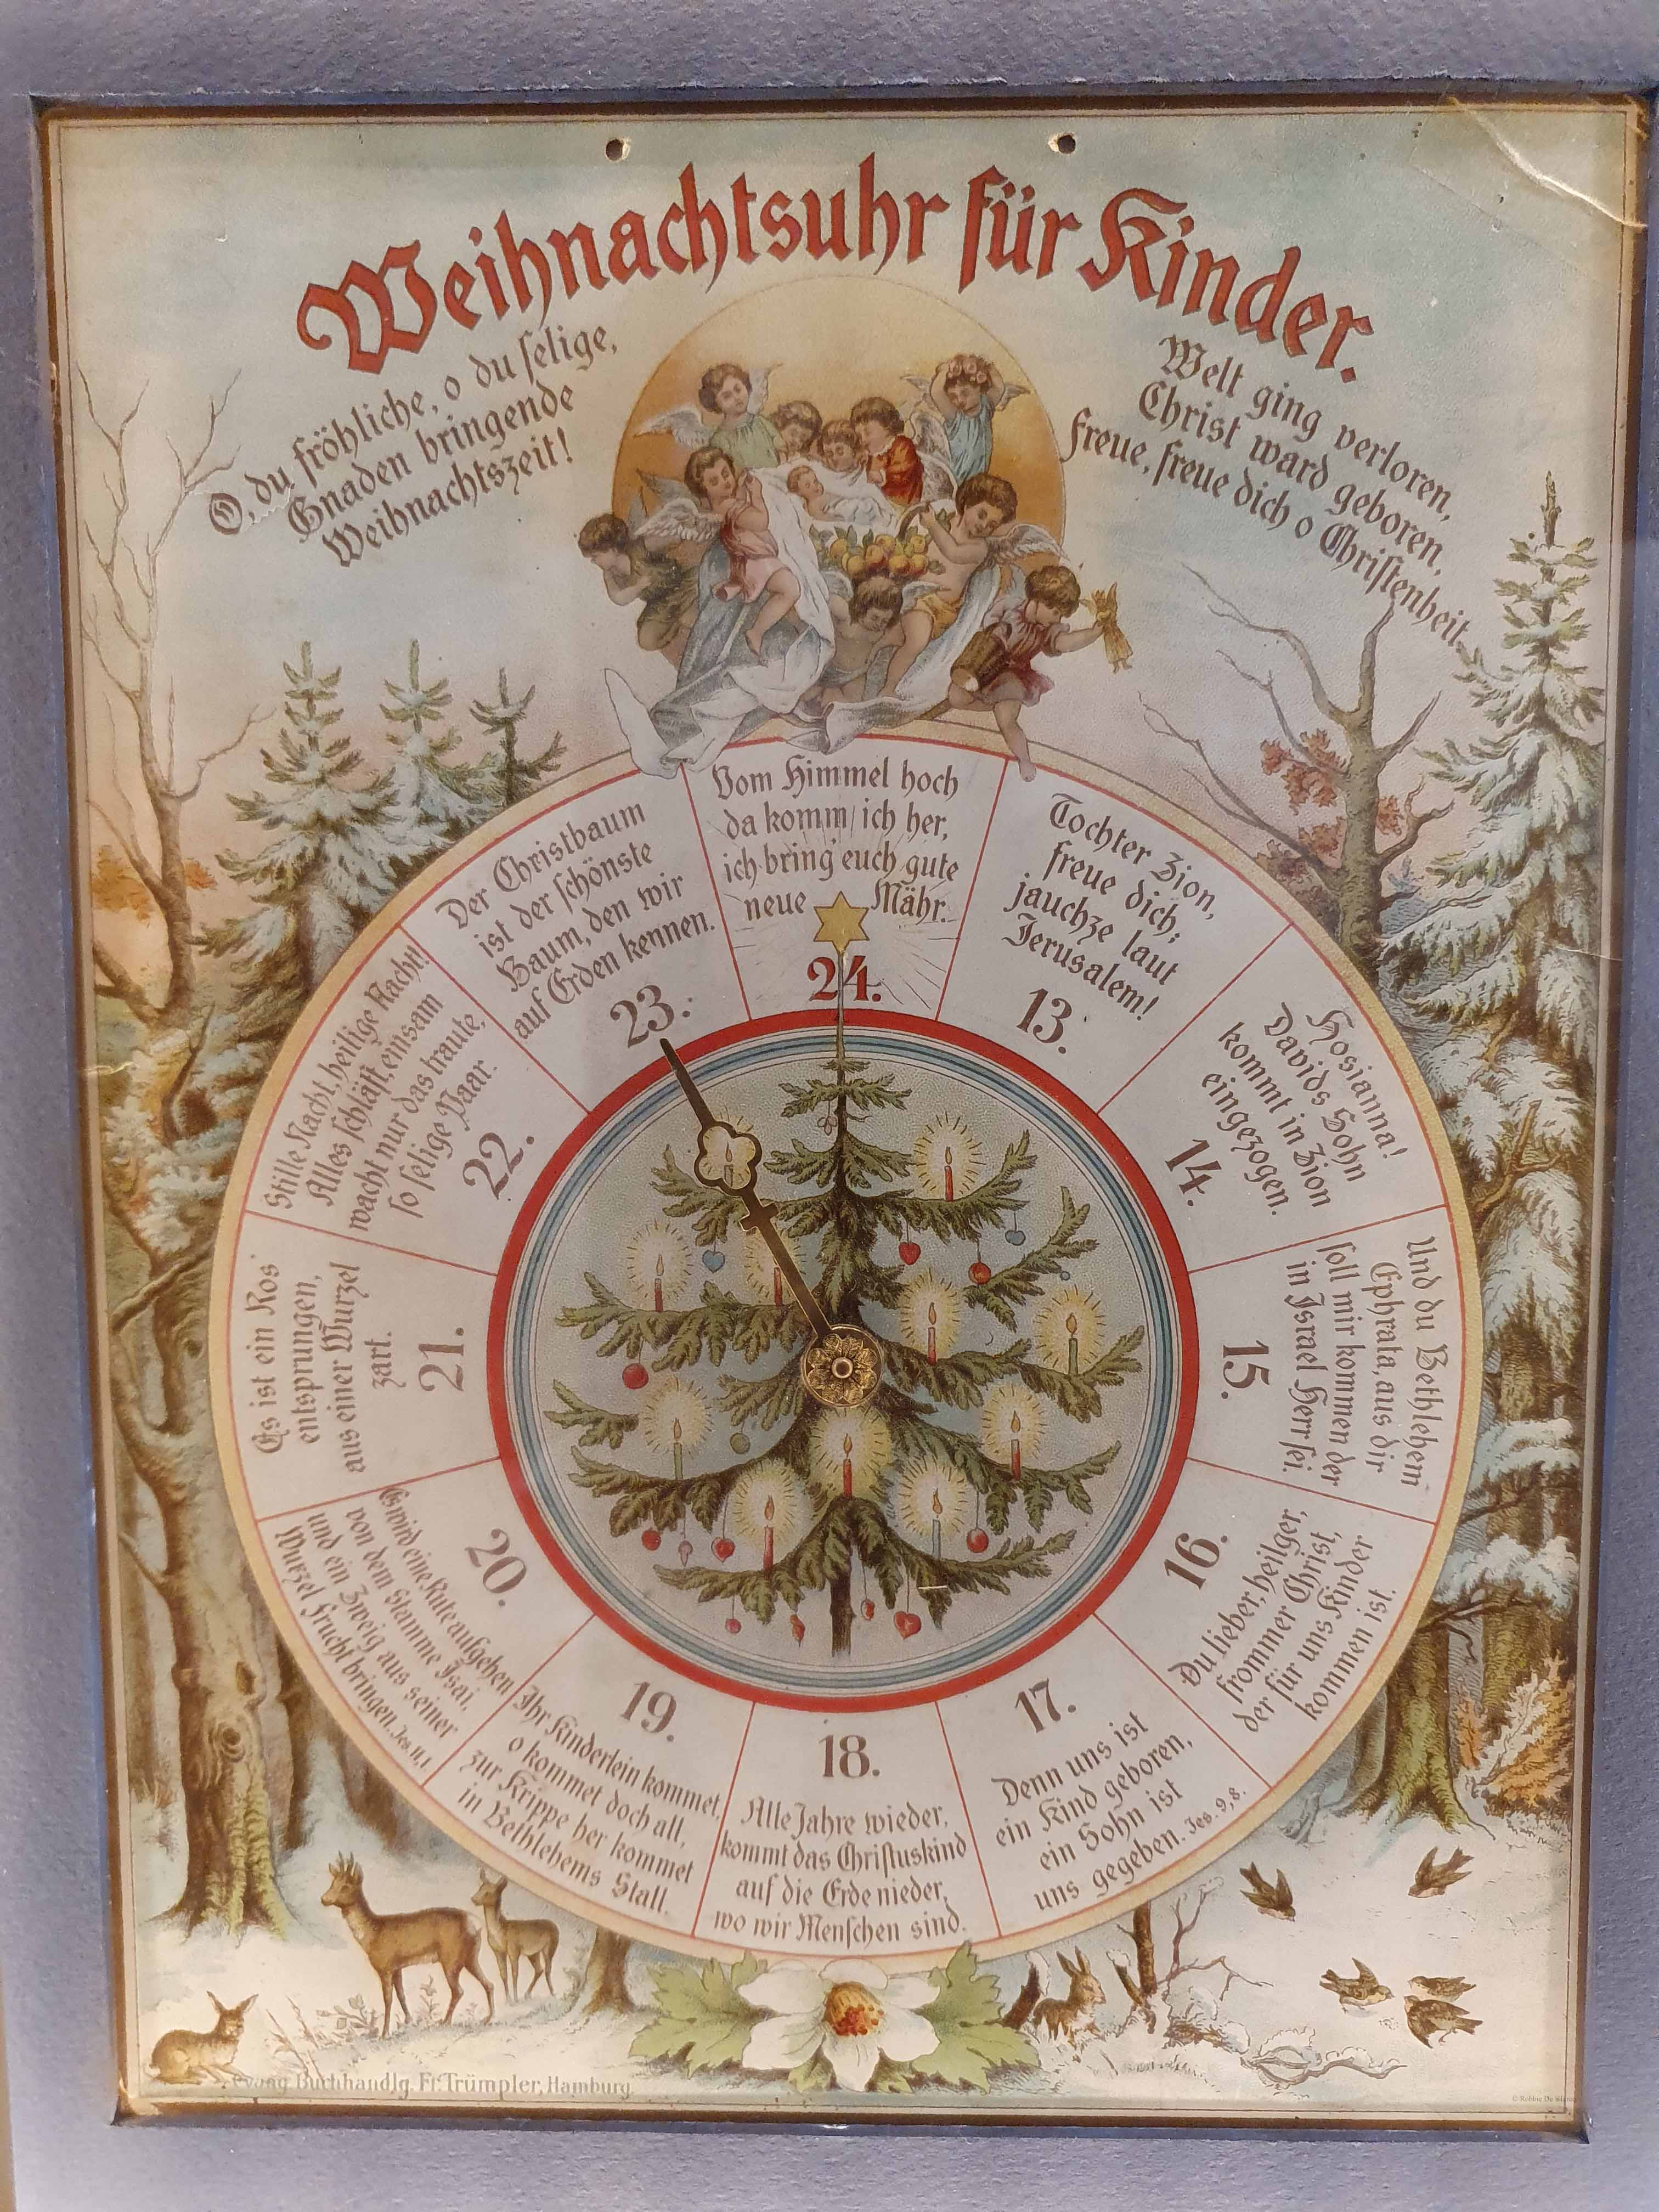 Weihnachtsuhr für Kinder.
O, du fröhliche, o du selige,
Gnaden bringende
Weihnachtszeit!
Welt ging verloren,
Christ ward geboren,
Freue, freue dich o Christenheit.
Vom Himmel hoch
da komm ich her,
ich bring' euch gute
neue Mähr.
24.
Tochter Zion,
freue dich;
jauchze laut
Jerusalem!
13.
Hosianna!
Davids Sohn
kommt in Zion
eingezogen.
14.
Und du Bethlehem
Ephrata, aus dir
soll mir kommen der
in Israel Herr sei.
15.
16.
Du lieber, heilger,
frommer Christ,
der für uns Kinder
kommen ist.
17.
Denn uns ist
ein Kind geboren,
ein Sohn ist
uns gegeben. Jes. 9,8.
18.
Alle Jahre wieder,
kommt das Christuskind
auf die Erde nieder,
wo wir Menschen sind.
19.
Ihr Kinderlein kommet,
o kommet doch all,
zur Krippe her kommet
in Bethlehems Stall.
20.
Es wird eine Rute aufgehen
von dem Stamme Isai,
und ein Zweig aus seiner
Wurzel Frucht bringen. Jes. 11,1
Es ist ein Ros'
entsprungen,
aus einer Wurzel
zart.
21.
Stille Nacht, heilige Nacht!
Alles schläft, einsam
wacht nur das traute,
so selige Paar.
22.
Der Christbaum
ist der schönste
Baum, den wir
auf Erden kennen.
23.
Evang. Buchhandlg. Fr. Trümpler, Hamburg.